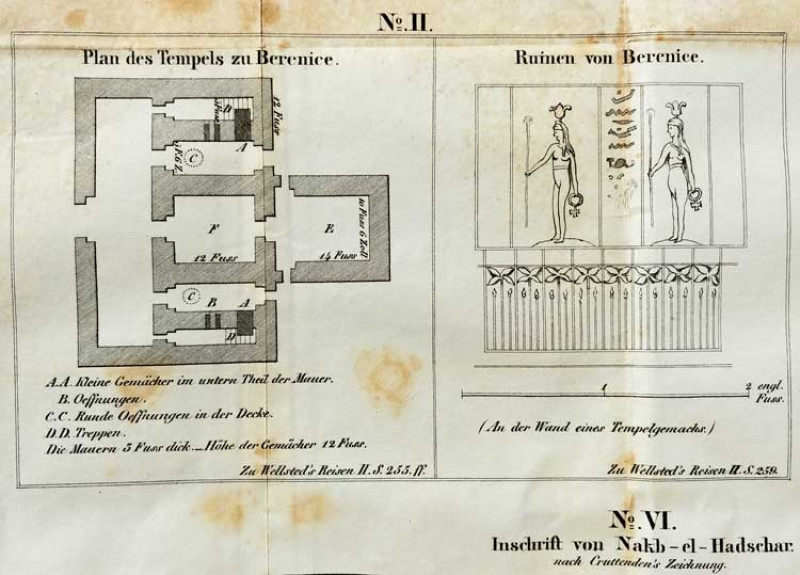 No. II.
Plan des Tempels zu Berenice.
12 Fuss
D
A
C
F
12 Fuss
E
14 Fuss
10 Fuss 6 Zoll
C
B
A
D
A.A. Kleine Gemächer im untern Theil der Mauer.
B. Oeffnungen.
C.C. Runde Oeffnungen in der Decke.
D.D. Treppen.
Die Mauern 3 Fuss dick. — Höhe der Gemächer 12 Fuss.
Zu Wellsted's Reisen II. S. 255. ff.
Ruinen von Berenice.
1
2 engl.
Fuss.
(An der Wand eines Tempelgemachs.)
Zu Wellsted's Reisen II. S. 259.
No. VI.
Inschrift von Nakb-el-Hadschar.
nach Cruttenden's Zeichnung.